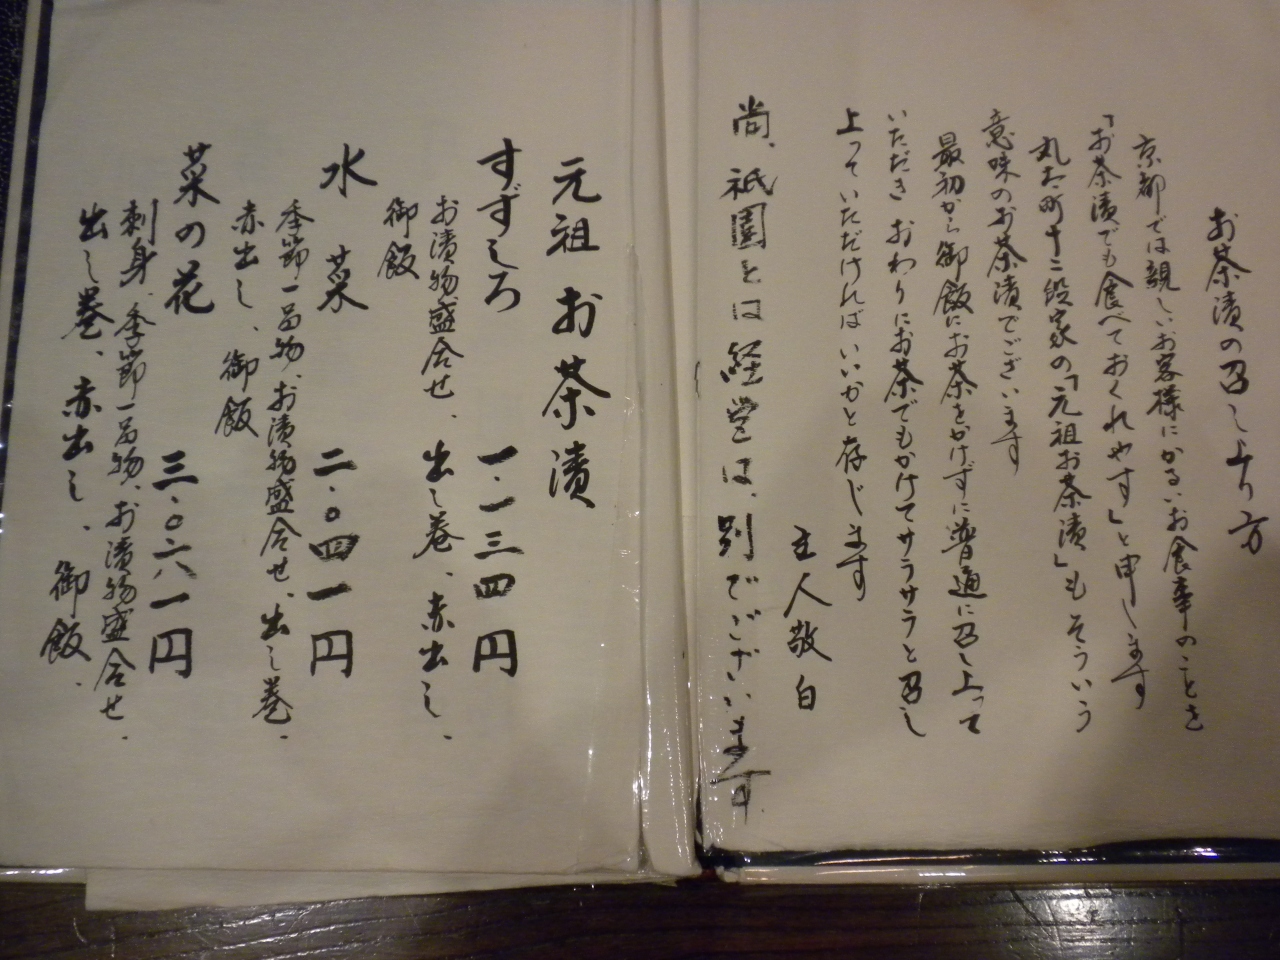 お茶漬の召し上り方
京都では親しいお客様にかるいお食事のことを
「お茶漬でも食べておくれやす」と申します
丸太町十二段家の「元祖お茶漬」もそういう
意味のお茶漬でございます
最初から御飯にお茶をかけずに普通に召し上って
いただき おわりにお茶でもかけてサラサラと召し
上っていただければいいかと存じます
主人敬白
尚、祇園とは経営は、別でございます
元祖お茶漬
すずしろ 一.一三四円
お漬物盛合せ、出し巻、赤出し、
御飯
水菜 二.〇四一円
季節一品物、お漬物盛合せ、出し巻、
赤出し、御飯
菜の花 三.〇六一円
刺身、季節一品物、お漬物盛合せ、
出し巻、赤出し、御飯、